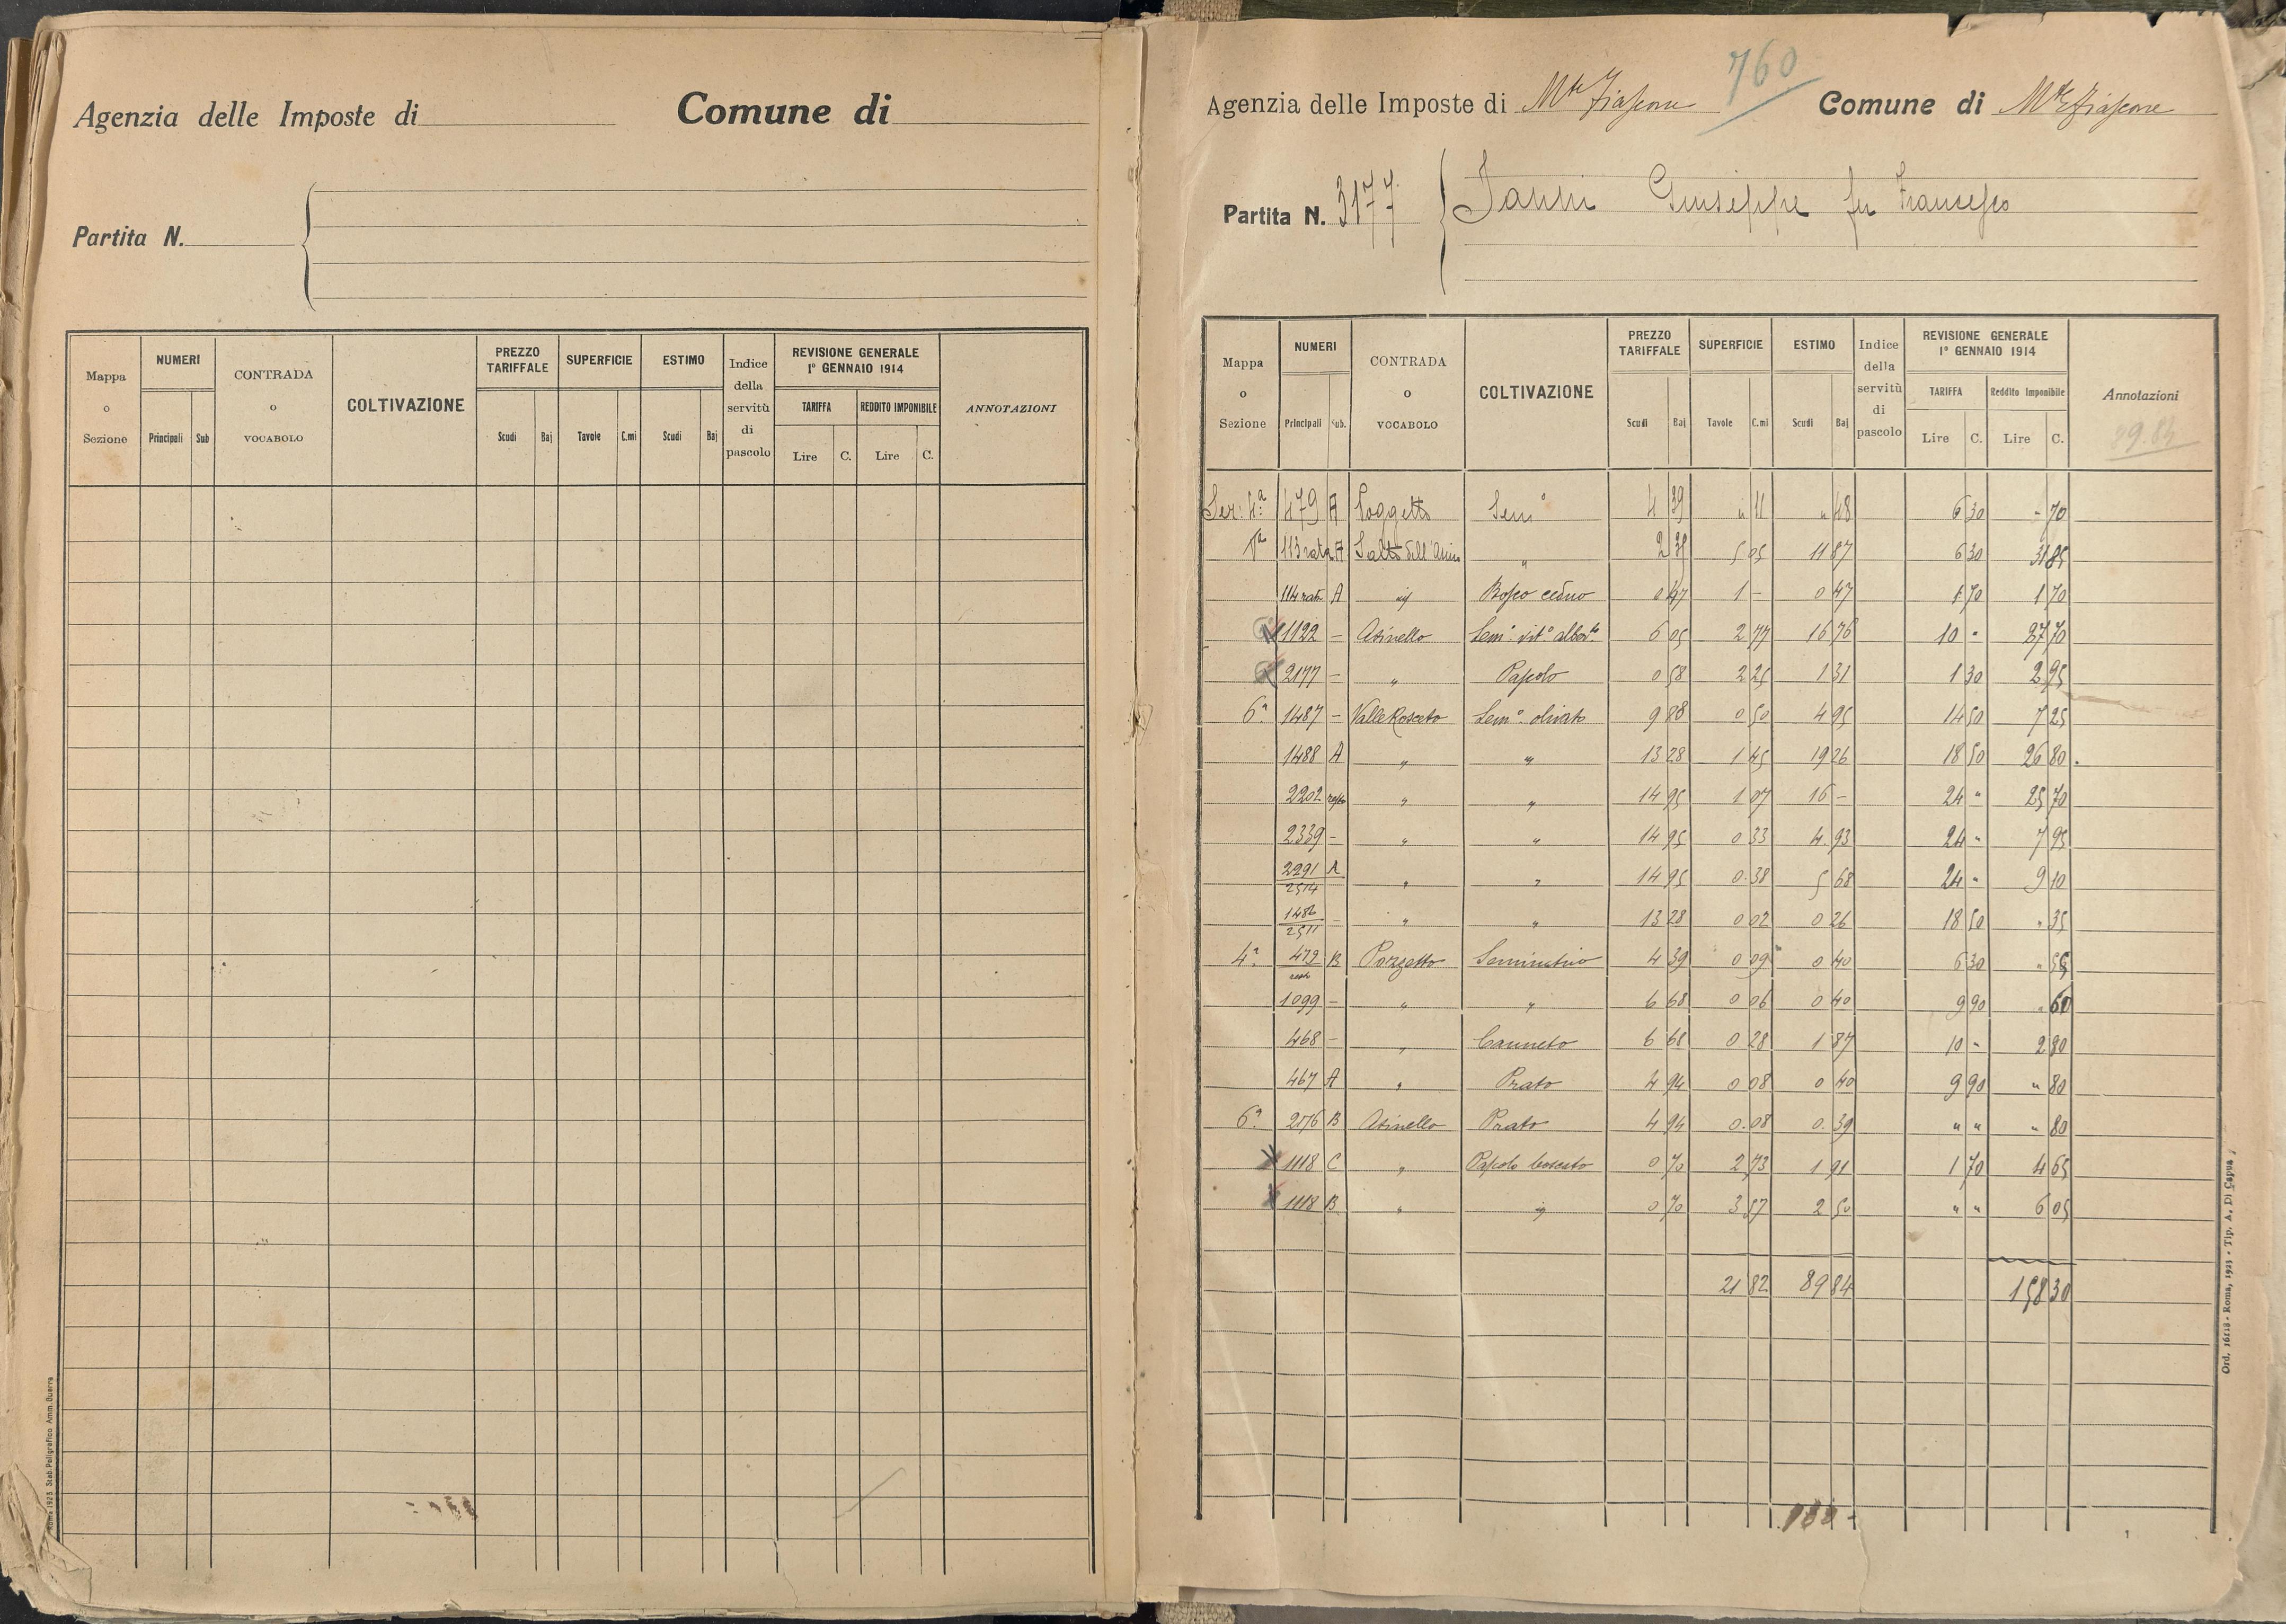 Agenzia delle Imposte di Comune di
Partita N.
Mappa o Sezione NUMERI Principali Sub CONTRADA o VOCABOLO COLTIVAZIONE PREZZO TARIFFALE Scudi Baj SUPERFICIE Tavole C.mi ESTIMO Scudi Baj Indice della servitù di pascolo REVISIONE GENERALE 1° GENNAIO 1914 TARIFFA Lire C. REDDITO IMPONIBILE Lire C. ANNOTAZIONI
Roma 1923 Stab. Poligrafico Amm. Guerra
760
Agenzia delle Imposte di Mte Fiascone Comune di Mte Fiascone
Partita N. 3177 Ianni Giuseppe fu Francesco
Mappa o Sezione NUMERI Principali Sub. CONTRADA o VOCABOLO COLTIVAZIONE PREZZO TARIFFALE Scudi Baj SUPERFICIE Tavole C.mi ESTIMO Scudi Baj Indice della servitù di pascolo REVISIONE GENERALE 1° GENNAIO 1914 TARIFFA Lire C. Reddito Imponibile Lire C. Annotazioni
89.84
Sez: 4ª 479 A Poggetto Sem° 4 39 " 11 " 48 6 30 " 70
Vª 113 rata A Salto dell'Asino " 2 35 5 05 11 87 6 30 31 85
114 rata A id Bosco ceduo 0 47 1 - 0 47 1 70 1 70
1122 - Asinello Sem° vit° alber.to 6 05 2 77 16 76 10 - 27 70
2177 - " Pascolo 0 58 2 25 1 31 1 30 2 95
6ª 1487 - Valle Rosceto Sem° olivato 9 88 0 50 4 95 14 50 7 25
1488 A " " 13 28 1 45 19 26 18 50 26 80
2202 resto " " 14 95 1 07 16 - 24 " 25 70
2339 - " " 14 95 0 33 4 93 24 " 7 95
2291/2514 A " " 14 95 0.38 5 68 24 " 9 10
1486/2511 - " " 13 28 0 02 0 26 18 50 " 35
4ª 479 resto B Pozzetto Seminativo 4 39 0 09 0 40 6 30 " 55
1099 - " " 6 68 0 06 0 40 9 90 " 60
468 - " Canneto 6 68 0 28 1 87 10 - 2 80
467 A " Prato 4 94 0 08 0 40 9 90 " 80
6ª 2176 B Asinello Prato 4 94 0.08 0.39 " " " 80
1118 C " Pascolo boscato 0 70 2 73 1 91 1 70 4 65
1118 B " " 0 70 3 57 2 50 " " 6 05
21 82 89 84 158 30
Ord. 16118 - Roma, 1925 - Tip. A. Di Capua